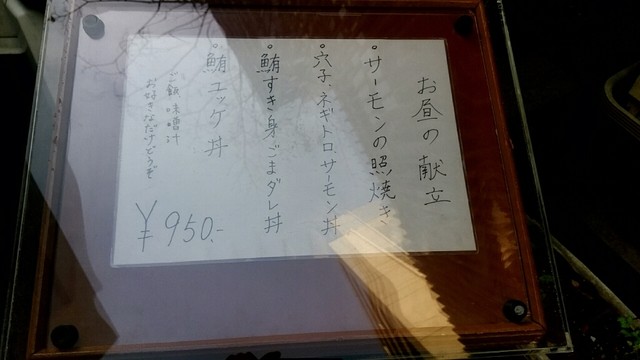 お昼の献立
・サーモンの照焼き
・穴子、ネギトロ、サーモン丼
・鮪すき身ごまダレ丼
・鮪ユッケ丼
ご飯、味噌汁
お好きなだけどうぞ
¥950.-